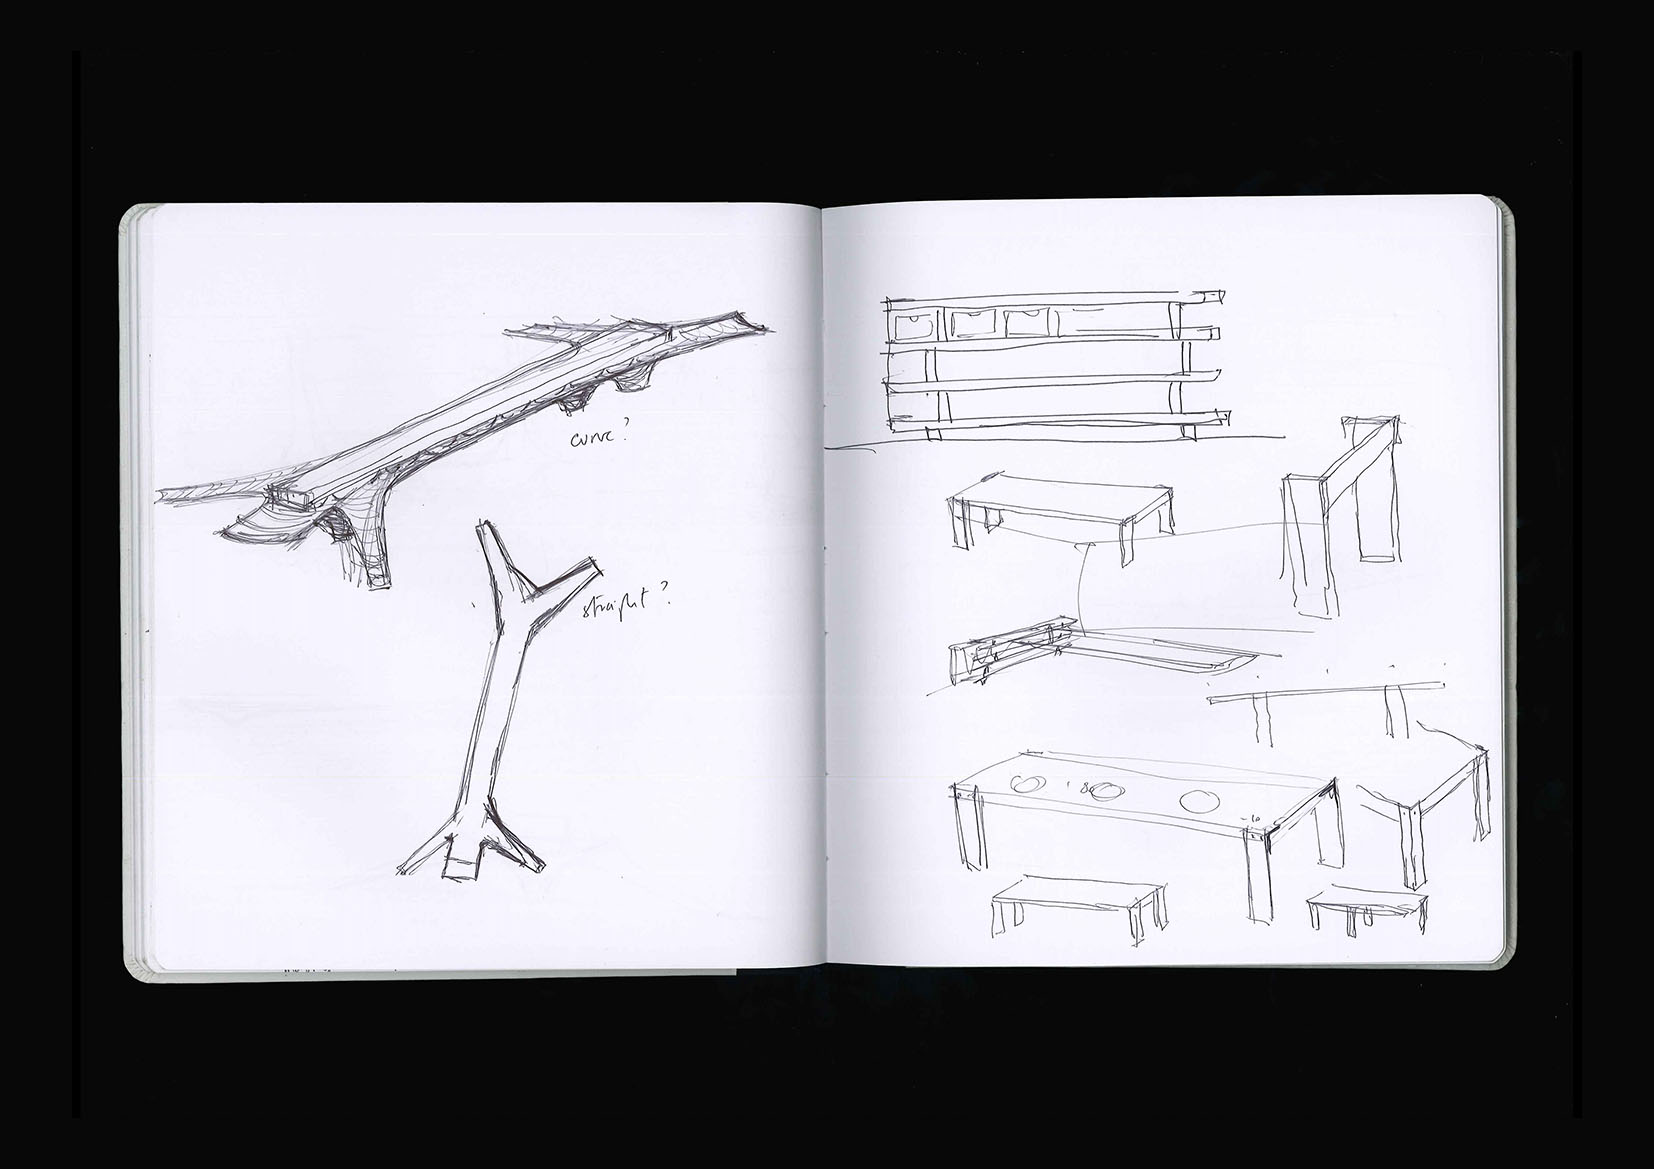 curve?
straight?